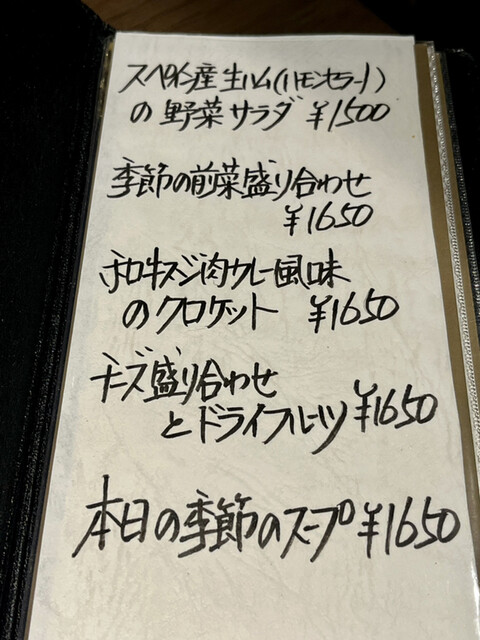 スペイン産生ハム(ハモンセラーノ)
の野菜サラダ ¥1500
季節の前菜盛り合わせ
¥1650
和牛スジ肉カレー風味
のクロケット ¥1650
チーズ盛り合わせ
とドライフルーツ ¥1650
本日の季節のスープ ¥1650